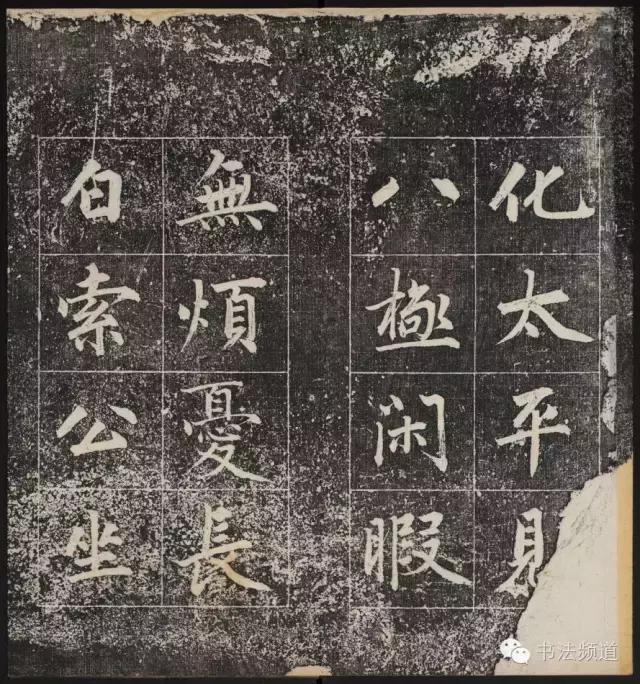 化太平
八極閑暇
無煩憂長
白索公坐
书法频道